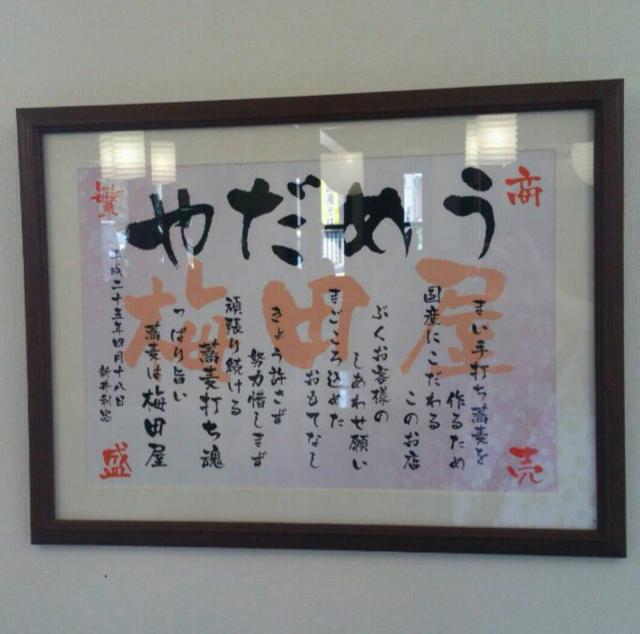 商
売
繁
盛
うめだや
梅田屋
まい手打ち蕎麦を
作るため
国産にこだわる
このお店
ぶくお客様の
しあわせ願い
まごころ込めた
おもてなし
きょう許さず
努力惜しまず
頑張り続ける
蕎麦打ち魂
っぱり旨い
蕎麦は梅田屋
平成二十五年四月十八日